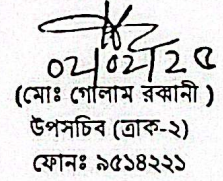 ০২/০২/২৫
(মোঃ গোলাম রব্বানী)
উপসচিব (ত্রাক-২)
ফোনঃ ৯৫১৪২২১